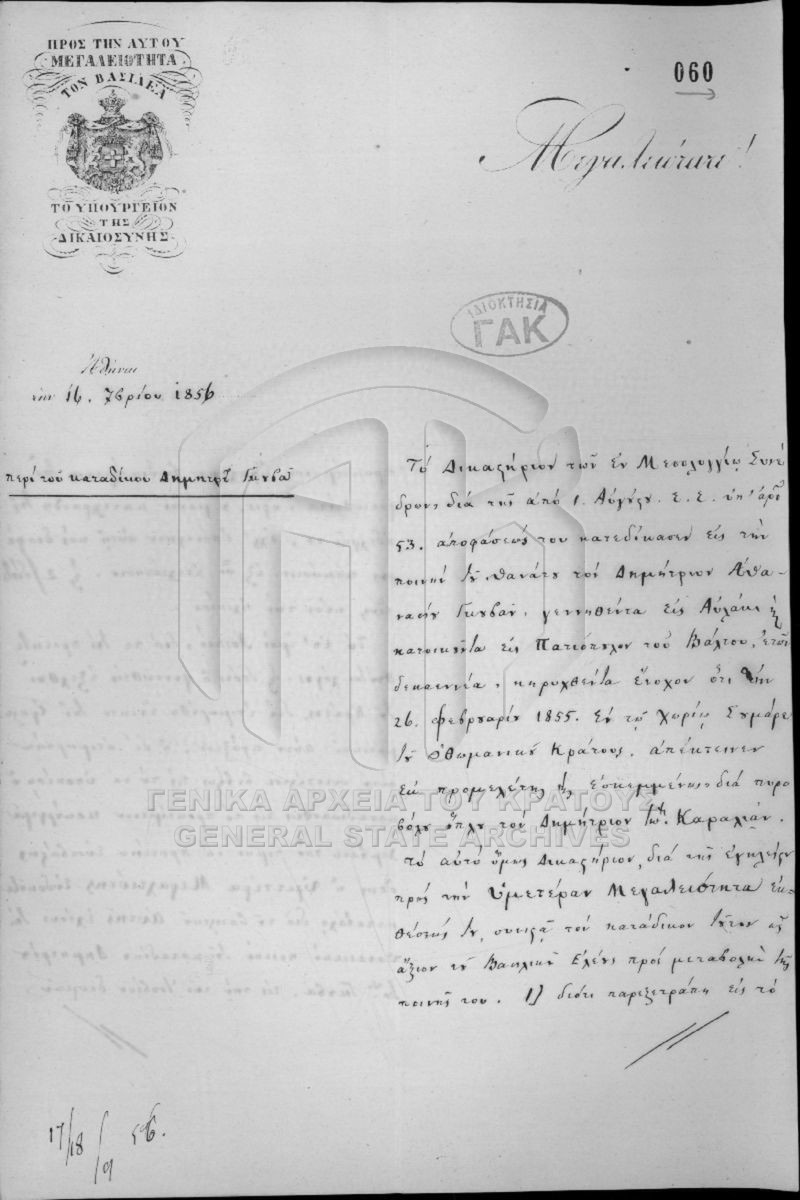 ΠΡΟΣ ΤΗΝ ΑΥΤΟΥ
ΜΕΓΑΛΕΙΟΤΗΤΑ
ΤΟΝ ΒΑΣΙΛΕΑ
ΤΟ ΥΠΟΥΡΓΕΙΟΝ
ΤΗΣ
ΔΙΚΑΙΟΣΥΝΗΣ
060
Μεγαλειότατε!
ΙΔΙΟΚΤΗΣΙΑ
ΓΑΚ
Ἀθῆναι
τὴν 16. 7βρίου 1856
περὶ τοῦ καταδίκου Δημητρ
Τὸ Δικαστήριον τῶν ἐν Μεσολογγίῳ Συνέ
δρων διὰ τῆς ἀπὸ 1. Αὐγούστου. ἔ. ἔ. ὑπ' ἀρι
53. ἀποφάσεώς του κατεδίκασεν εἰς τὴν
ποινὴν τοῦ θανάτου τὸν Δημήτριον Ἀθα-
νασίου γεννηθέντα εἰς Αὐλάκι καὶ
κατοικοῦντα εἰς τοῦ Βάλτου, ἐτῶν
δεκαεννέα, κηρυχθέντα ἔνοχον ὅτι τὴν
26. φεβρουαρίου 1855. Ἐν τῷ χωρίῳ
τοῦ Ὀθωμανικοῦ Κράτους, ἀπέκτεινεν
ἐκ προμελέτης καὶ ἐσκεμμένως διὰ πυρο
βόλου ὅπλου τὸν Δημήτριον
ΓΕΝΙΚΑ ΑΡΧΕΙΑ ΤΟΥ ΚΡΑΤΟΥΣ
GENERAL STATE ARCHIVES
τὸ αὐτὸ ὅμως Δικαστήριον, διὰ τῆς ἐγκλείστου
πρὸς τὴν Ὑμετέραν Μεγαλειότητα ἐκ-
θέσεώς του, συνιστᾷ τὸν κατάδικον τοῦτον ὡς
ἄξιον τοῦ Βασιλικοῦ Ἐλέους πρὸς μεταβολὴν τῆς
ποινῆς του. 1) διότι παρεξετράπη εἰς τὸ
17/18/9 56.